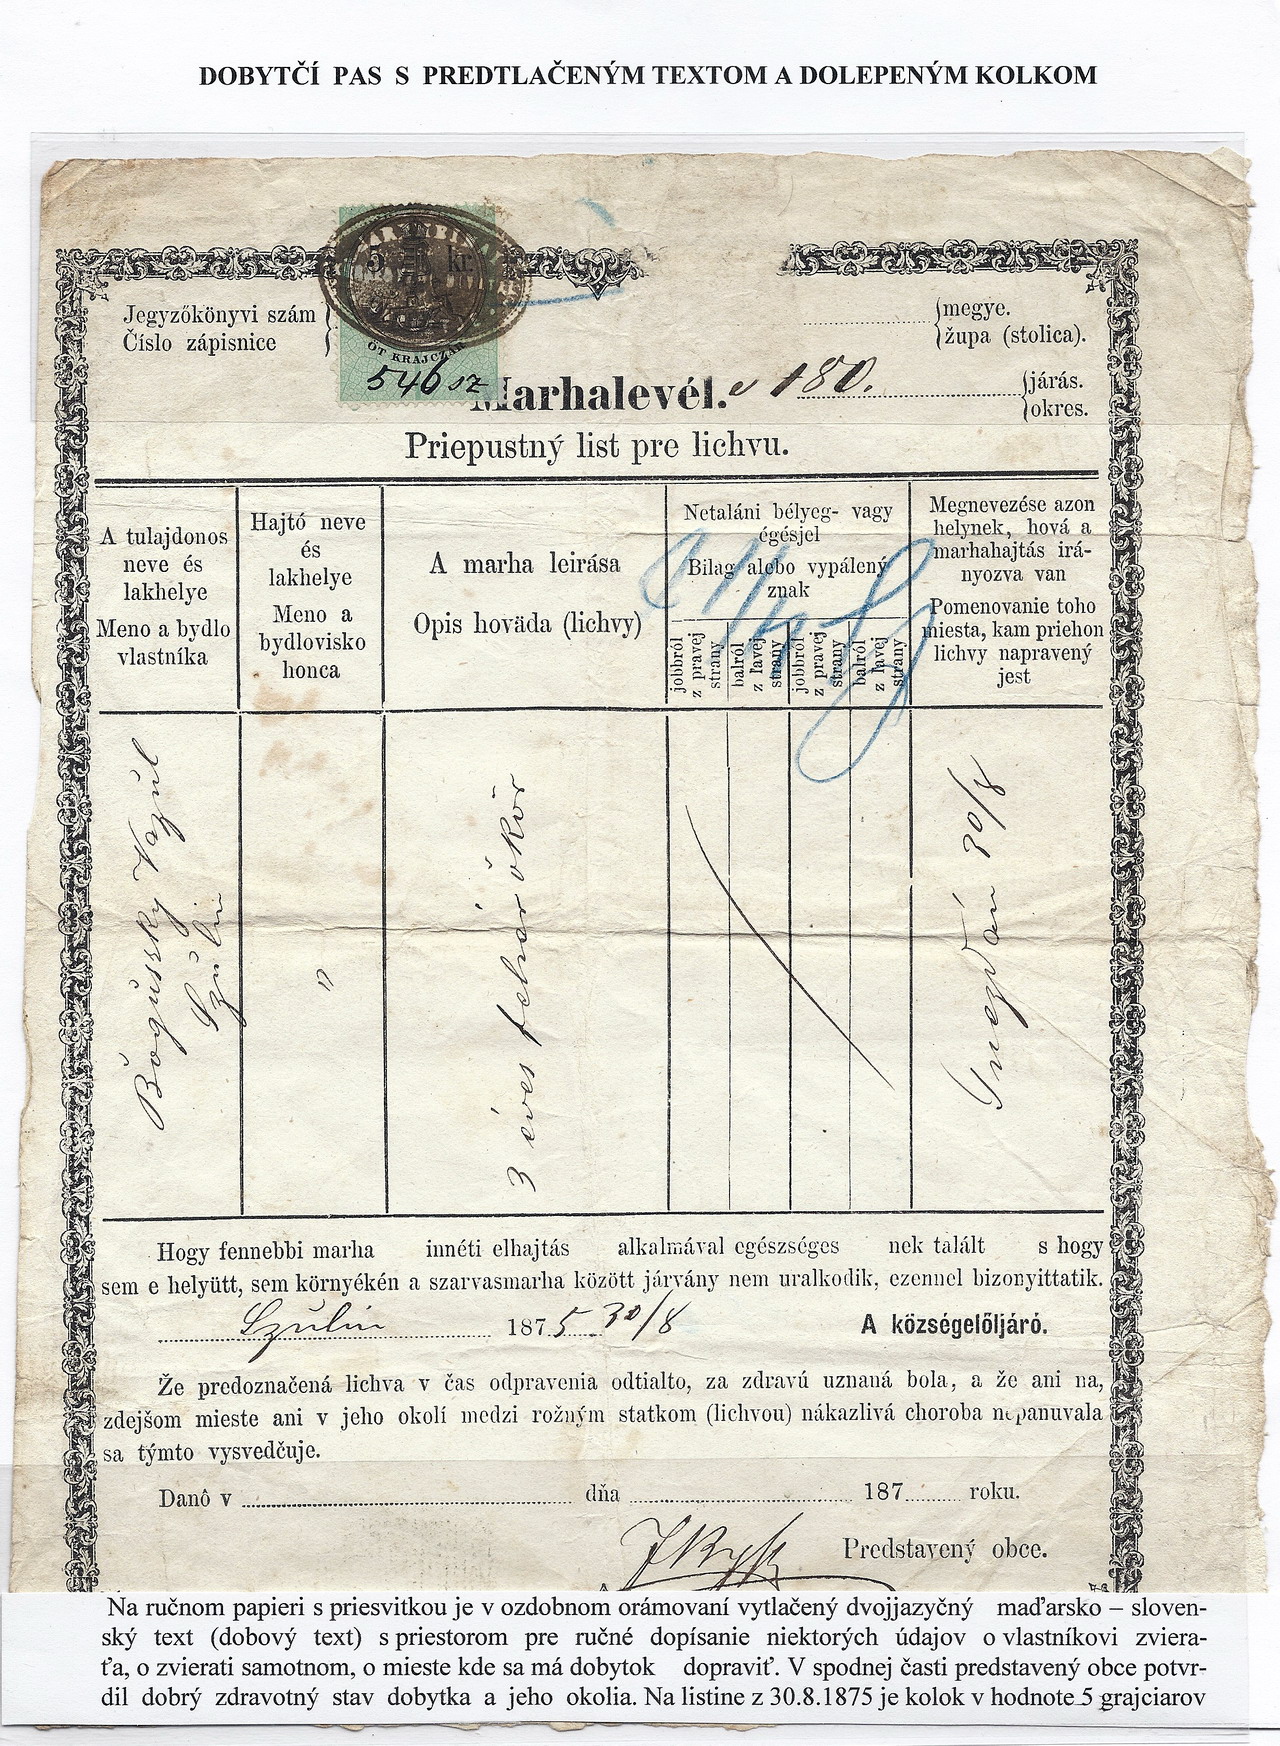 DOBYTČÍ PAS S PREDTLAČENÝM TEXTOM A DOLEPENÝM KOLKOM
5 kr.
ÖT KRAJCZÁR
546 sz
Jegyzőkönyvi szám
Číslo zápisnice
megye.
župa (stolica).
Marhalevél.
180.
járás.
okres.
Priepustný list pre lichvu.
A tulajdonos
neve és
lakhelye
Meno a bydlo
vlastníka
Hajtó neve
és
lakhelye
Meno a
bydlovisko
honca
A marha leirása
Opis hoväda (lichvy)
Netaláni bélyeg- vagy
égésjel
Bilag alebo vypálený
znak
jobbról
z pravej
strany
balról
z ľavej
strany
jobbról
z pravej
strany
balról
z ľavej
strany
Megnevezése azon
helynek, hová a
marhahajtás irá-
nyozva van
Pomenovanie toho
miesta, kam priehon
lichvy napravený
jest
Bogussky Vazul
Szulin
"
3 éves fehér ökör
Gnezdán 30/8
Hogy fennebbi marha innéti elhajtás alkalmával egészséges nek talált s hogy
sem e helyütt, sem környékén a szarvasmarha között járvány nem uralkodik, ezennel bizonyittatik.
Szulin 1875 30/8 A községelőljáró.
Že predoznačená lichva v čas odpravenia odtialto, za zdravú uznaná bola, a že ani na,
zdejšom mieste ani v jeho okolí medzi rožným statkom (lichvou) nákazlivá choroba nepanuvala
sa týmto vysvedčuje.
Danô v dňa 187 roku.
Predstavený obce.
Na ručnom papieri s priesvitkou je v ozdobnom orámovaní vytlačený dvojjazyčný maďarsko – sloven-
ský text (dobový text) s priestorom pre ručné dopísanie niektorých údajov o vlastníkovi zviera-
ťa, o zvierati samotnom, o mieste kde sa má dobytok dopraviť. V spodnej časti predstavený obce potvr-
dil dobrý zdravotný stav dobytka a jeho okolia. Na listine z 30.8.1875 je kolok v hodnote 5 grajciarov